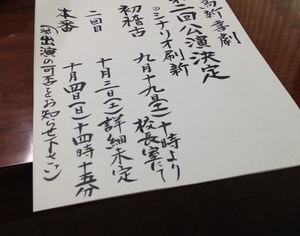 馬新喜劇
才二回公演決定
◎シナリオ刷新
初稽古
九月十九(土)十時より
校長室にて
二回目
十月三日(土)詳細未定
本番
十月四日(日)十四時十五分
(※出演の可否をお知らせ下さい)